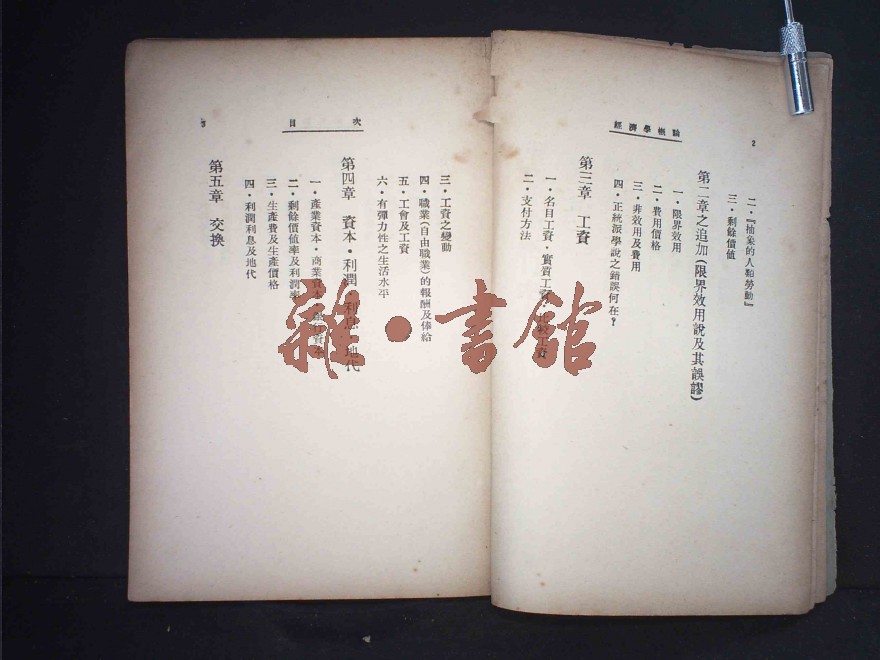 2
經濟學概論
二・『抽象的人類勞動』
三・剩餘價值
第二章之追加(限界效用說及其誤謬)
一・限界效用
二・費用價格
三・非效用及費用
四・正統派學說之錯誤何在?
第三章 工資
一・名目工資・實質工資・比較工資
二・支付方法
目次
3
三・工資之變動
四・職業(自由職業)的報酬及俸給
五・工會及工資
六・有彈力性之生活水平
第四章 資本・利潤・利息・地代
一・產業資本・商業資本・資本
二・剩餘價值率及利潤率
三・生產費及生產價格
四・利潤利息及地代
第五章 交換
雜・書館